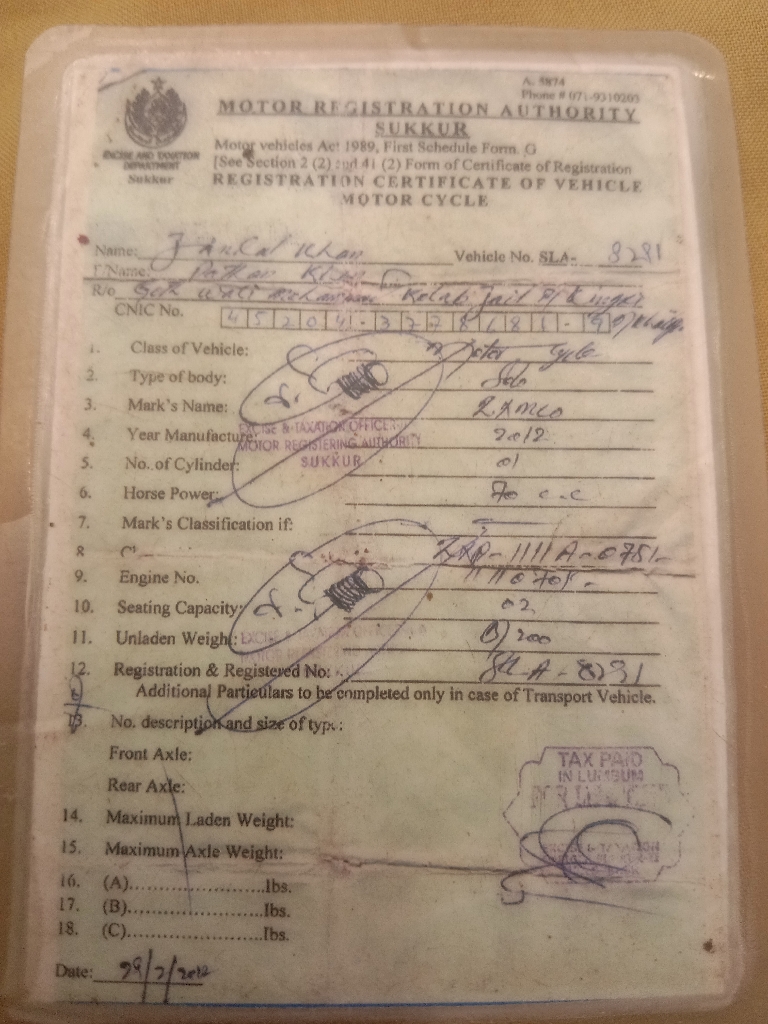 A. 5874
Phone # 071-9310203
MOTOR REGISTRATION AUTHORITY
SUKKUR
EXCISE AND TAXATION
DEPARTMENT
Sukkur
Motor vehicles Act 1989, First Schedule Form. G
[See Section 2 (2) and 41 (2) Form of Certificate of Registration
REGISTRATION CERTIFICATE OF VEHICLE
MOTOR CYCLE
Name: Khan Vehicle No. SLA- 8291
F/Name: Pathan Khan
R/o
CNIC No. 45204-3778181-9
1. Class of Vehicle: Motor Cycle
2. Type of body: Solo
3. Mark's Name: ZXMCO
4. Year Manufacture: 2012
5. No. of Cylinder: 01
6. Horse Power: 70 c.c
7. Mark's Classification if:
8
9. Engine No.
10. Seating Capacity: 02
11. Unladen Weigh:
12. Registration & Registered No: SLA-8291
Additional Particulars to be completed only in case of Transport Vehicle.
13. No. description and size of type:
Front Axle:
Rear Axle:
14. Maximum Laden Weight:
15. Maximum Axle Weight:
16. (A)......................lbs.
17. (B)......................lbs.
18. (C)......................lbs.
Date: 29/2/2012
EXCISE & TAXATION OFFICER
MOTOR REGISTERING AUTHORITY
SUKKUR
TAX PAID
IN LUMBUM